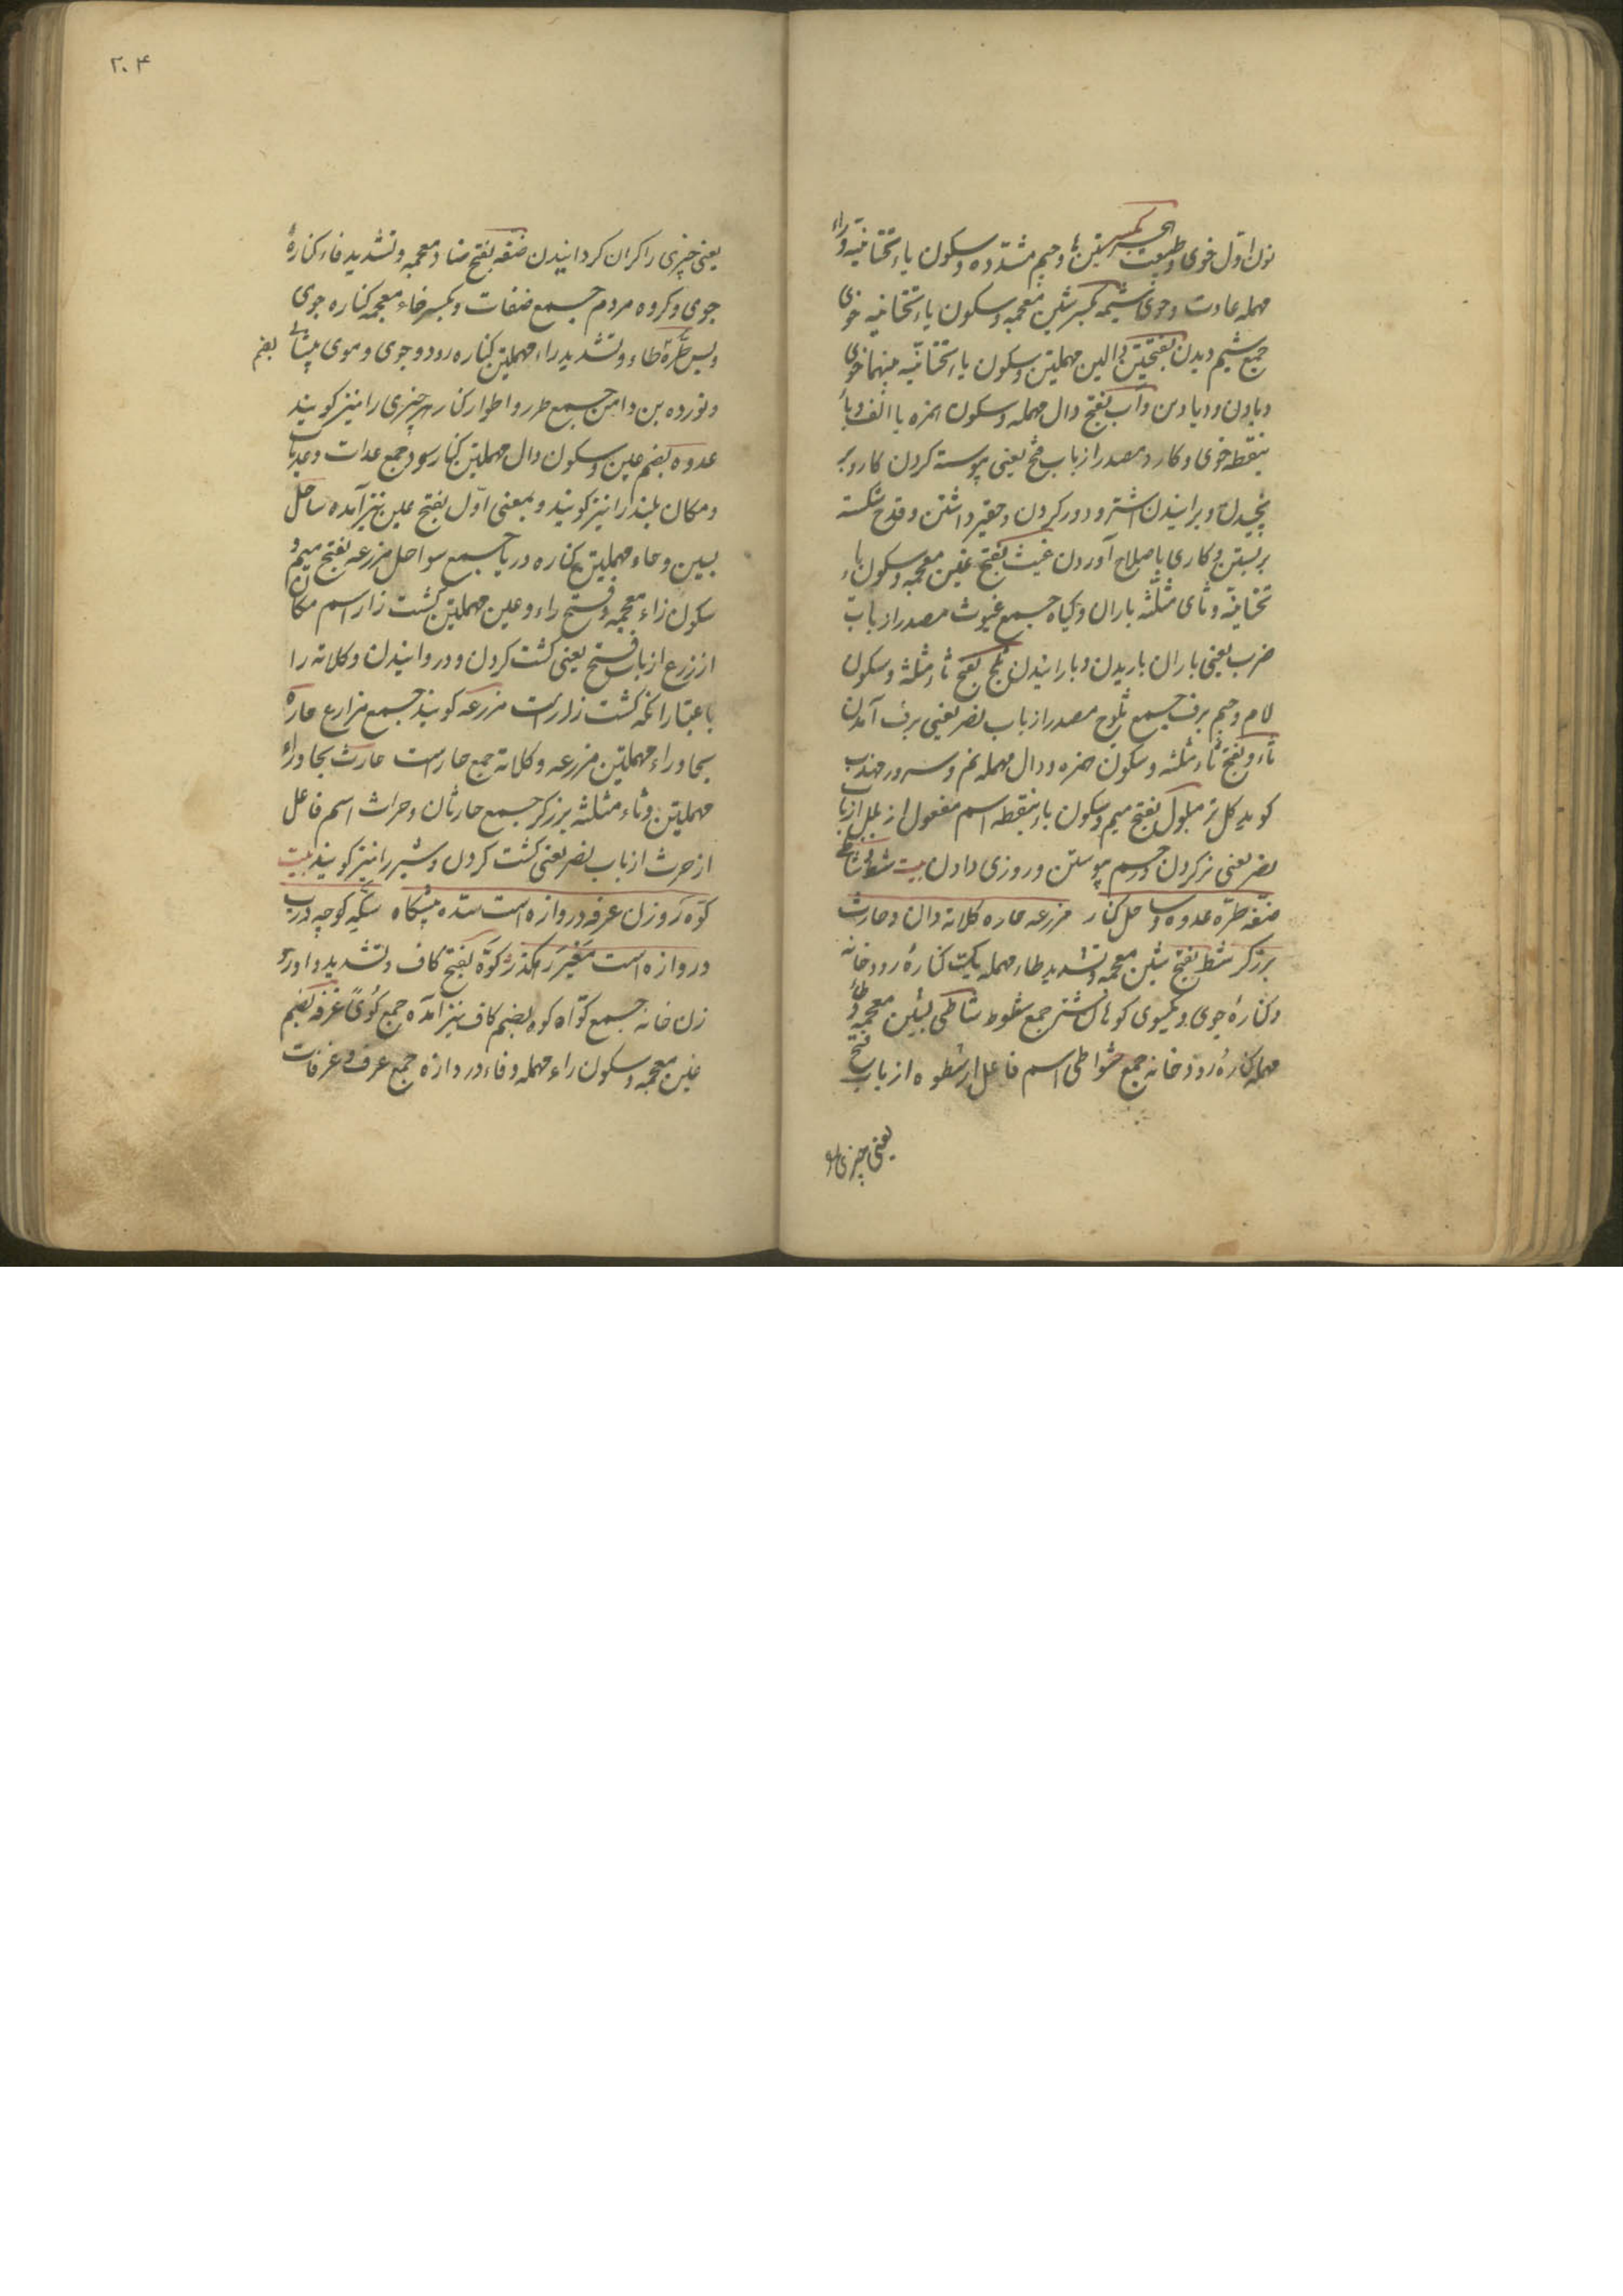 نون اول خوی و طبیعت هجیر بکسرتین ها و جیم مشدده و سکون یاء تختانیه و راء
مهمله عادت و خوی شیمه بکسر شین معجمه و سکون یاء تختانیه خوی
جمع شیم دیدن بفتحتین دالین مهملتین و سکون یاء تختانیه بینهما خوی
دأب بفتح دال مهمله و سکون همزه با الف و باء
بنقطه خوی و کار و مصدر از باب فتح یعنی پیوسته کردن کار و بر
و برانیدن اشتر و دور کردن و حقیر داشتن و قدح شکسته
بر بستن و کاری باصلاح آوردن غیث بفتح غین معجمه و سکون یاء
تختانیه و ثای مثلثه باران و کیاه جمع غیوث مصدر از باب
ضرب یعنی باران باریدن و بارانیدن ثلج بفتح ثاء مثلثه و سکون
لام و جیم برف جمع ثلوج مصدر از باب نصر یعنی برف آمدن
ثاء و بفتح ثاء مثلثه و سکون همزه و دال مهمله نم و سرد
کویند کل تر مبلول بفتح میم و سکون باء بنقطه اسم مفعول از بلل از باب
نصر یعنی تر کردن و رحم پیوستن و روزی دادن بیت شط و شاطی
ضفه طره عدوه و ساحل کنار مزرعه حاره کلاته دان و حارث
برزکر شط بفتح شین معجمه و تشدید طاء مهمله یکیت کناره رودخانه
و کناره جوی و یکسوی کوهان شتر جمع شطوط شاطی بشین معجمه و طاء
مهمله کناره رودخانه جمع شواطی اسم فاعل از شطوه از باب فتح
یعنی چیزی را
۲۰۴
یعنی چیزی را کران کردانیدن ضفه بفتح ضاد معجمه و تشدید فاء کناره
جوی و کروه مردم جمع ضفات و بکسر ضاء معجمه کناره جوی
و بس طره طاء و تشدید راء مهملتین کناره رود و جوی و موی پیشانی
بضم
و نورده بن دامن جمع طرر و اطرار کنار هر چیزی را نیز کویند
عدوه بضم عین و سکون دال مهملتین کنار رود جمع عدات و عدیات
و مکان بلند را نیز کویند و بمعنی اول بفتح عین نیز آمده ساحل
بسین و حاء مهملتین کناره دریا جمع سواحل مزرعه بفتح میم و
سکون زاء معجمه و فتح راء و عین مهملتین کشت زار اسم مکان
از زرع از باب فتح یعنی کشت کردن و دروانیدن و کلاته را
باعتبار آنکه کشت زار است مزرعه کویند جمع مزارع حاره
بحا و راء مهملتین مزرعه و کلاته جمع حارست حارث بحا و راء
مهملتین و ثاء مثلثه برزکر جمع حارثان و حراث اسم فاعل
از حرث از باب نصر یعنی کشت کردن و شیر را نیز کویند بیت
کوه روزن غرفه دروازه است سده پیشکاه سکه کوچه درب
دروازه است معبر رهکذر کوه بفتح کاف و تشدید واو
زن خانه جمع کواه کوه بضم کاف نیز آمده جمع کوی غرفه بضم
غین معجمه و سکون راء مهمله و فاء دروازه جمع غرف و غرفات